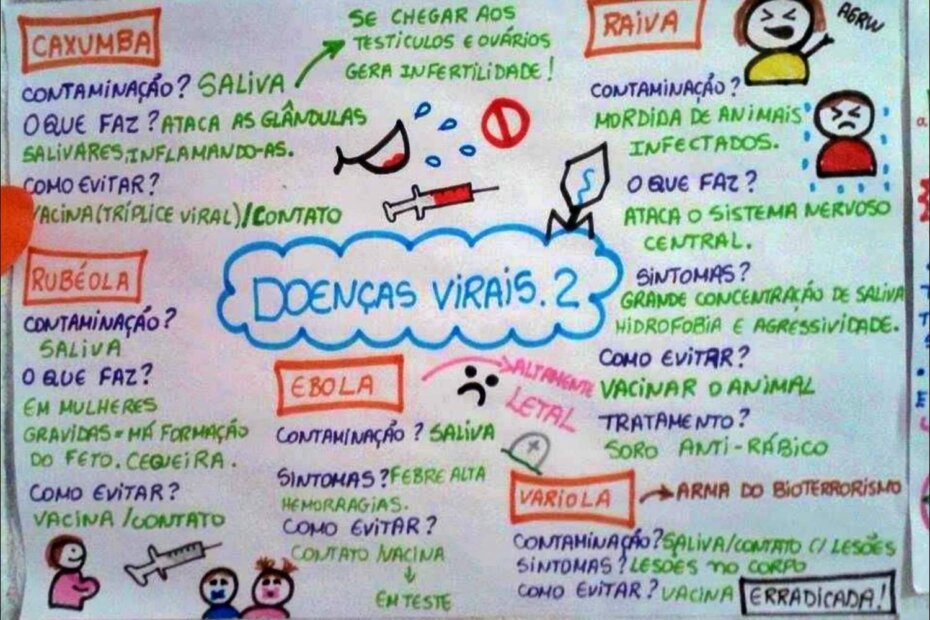 CAXUMBA
CONTAMINAÇÃO? SALIVA
SE CHEGAR AOS
TESTÍCULOS E OVÁRIOS
GERA INFERTILIDADE!
O QUE FAZ? ATACA AS GLÂNDULAS
SALIVARES, INFLAMANDO-AS.
COMO EVITAR?
VACINA (TRÍPLICE VIRAL)/CONTATO
RAIVA
AGRW
CONTAMINAÇÃO?
MORDIDA DE ANIMAIS
INFECTADOS.
O QUE FAZ?
ATACA O SISTEMA NERVOSO
CENTRAL.
SINTOMAS?
GRANDE CONCENTRAÇÃO DE SALIVA
HIDROFOBIA E AGRESSIVIDADE.
COMO EVITAR?
VACINAR O ANIMAL
TRATAMENTO?
SORO ANTI-RÁBICO
DOENÇAS VIRAIS. 2
RUBÉOLA
CONTAMINAÇÃO?
SALIVA
O QUE FAZ?
EM MULHERES
GRAVIDAS = MÁ FORMAÇÃO
DO FETO. CEQUEIRA.
COMO EVITAR?
VACINA / CONTATO
EBOLA
ALTAMENTE
LETAL
CONTAMINAÇÃO? SALIVA
SINTOMAS? FEBRE ALTA
HEMORRAGIAS.
COMO EVITAR?
CONTATO /VACINA
EM TESTE
VARIOLA
ARMA DO BIOTERRORISMO
CONTAMINAÇÃO? SALIVA/CONTATO C/ LESÕES
SINTOMAS? LESÕES NO CORPO
COMO EVITAR? VACINA
ERRADICADA!